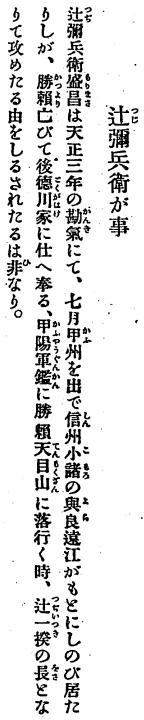 辻彌兵衛が事
辻彌兵衛盛昌は天正三年の勘氣にて、七月甲州を出で信州小諸の與良遠江がもとにしのび居た
りしが、勝賴亡びて後德川家に仕へ奉る、甲陽軍鑑に勝賴天目山に落行く時、辻一揆の長とな
りて攻めたる由をしるされたるは非なり。